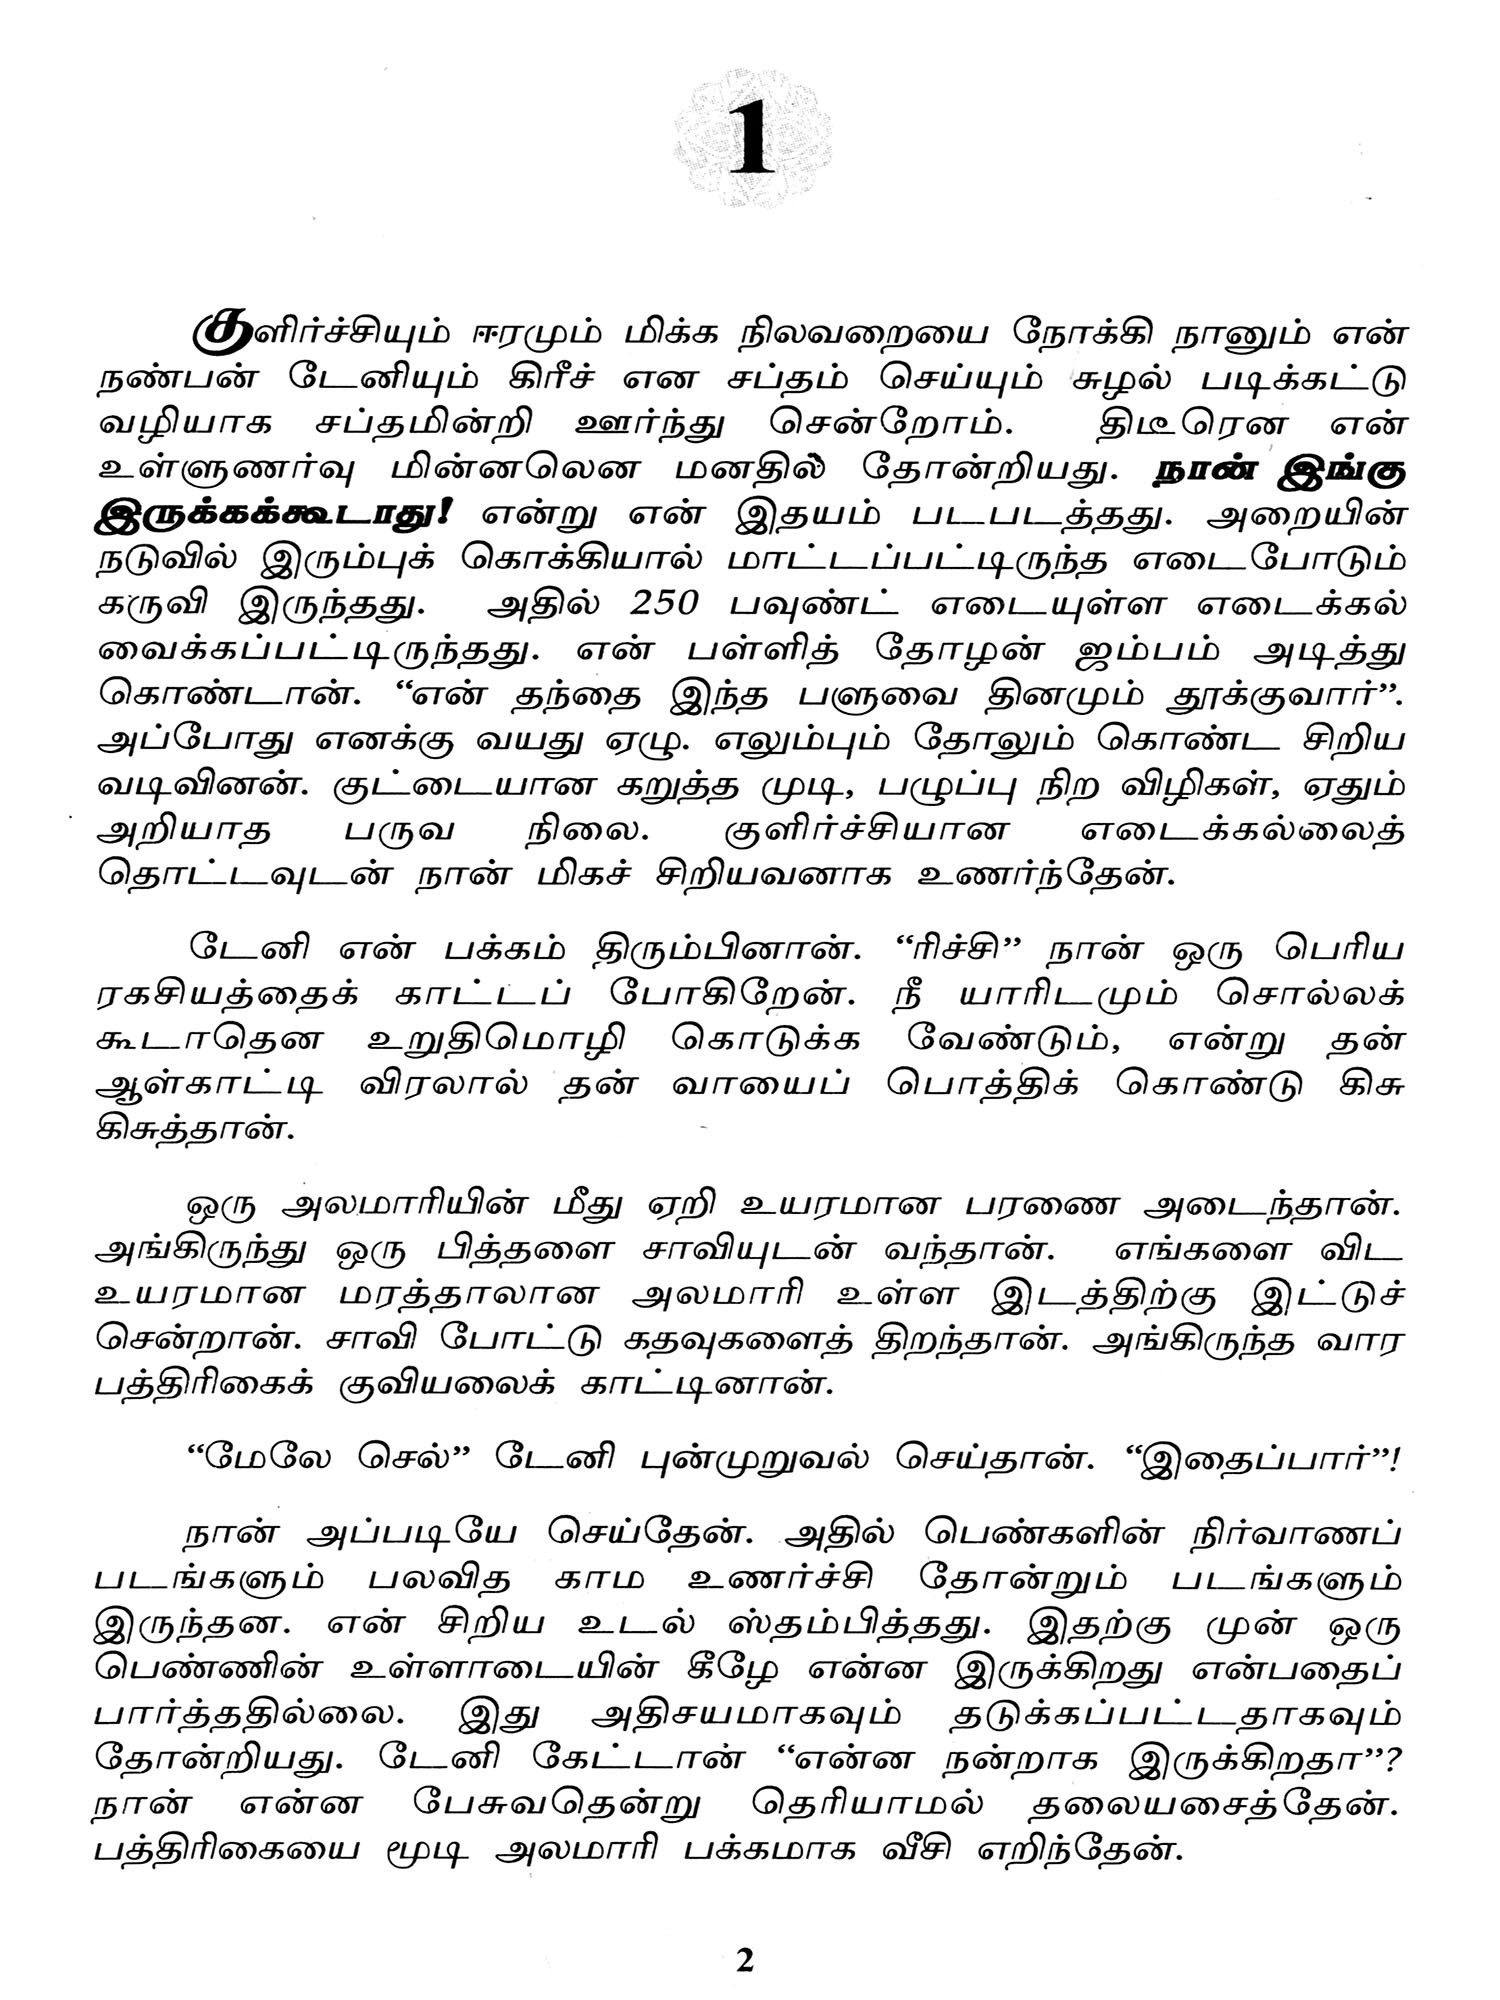 1
குளிர்ச்சியும் ஈரமும் மிக்க நிலவறையை நோக்கி நானும் என்
நண்பன் டேனியும் கிரீச் என சப்தம் செய்யும் சுழல் படிக்கட்டு
வழியாக சப்தமின்றி ஊர்ந்து சென்றோம். திடீரென என்
உள்ளுணர்வு மின்னலென மனதில் தோன்றியது. நான் இங்கு
இருக்கக்கூடாது! என்று என் இதயம் படபடத்தது. அறையின்
நடுவில் இரும்புக் கொக்கியால் மாட்டப்பட்டிருந்த எடைபோடும்
கருவி இருந்தது. அதில் 250 பவுண்ட் எடையுள்ள எடைக்கல்
வைக்கப்பட்டிருந்தது. என் பள்ளித் தோழன் ஜம்பம் அடித்து
கொண்டான். “என் தந்தை இந்த பளுவை தினமும் தூக்குவார்”.
அப்போது எனக்கு வயது ஏழு. எலும்பும் தோலும் கொண்ட சிறிய
வடிவினன். குட்டையான கறுத்த முடி, பழுப்பு நிற விழிகள், ஏதும்
அறியாத பருவ நிலை. குளிர்ச்சியான எடைக்கல்லைத்
தொட்டவுடன் நான் மிகச் சிறியவனாக உணர்ந்தேன்.
டேனி என் பக்கம் திரும்பினான். “ரிச்சி” நான் ஒரு பெரிய
ரகசியத்தைக் காட்டப் போகிறேன். நீ யாரிடமும் சொல்லக்
கூடாதென உறுதிமொழி கொடுக்க வேண்டும், என்று தன்
ஆள்காட்டி விரலால் தன் வாயைப் பொத்திக் கொண்டு கிசு
கிசுத்தான்.
ஒரு அலமாரியின் மீது ஏறி உயரமான பரணை அடைந்தான்.
அங்கிருந்து ஒரு பித்தளை சாவியுடன் வந்தான். எங்களை விட
உயரமான மரத்தாலான அலமாரி உள்ள இடத்திற்கு இட்டுச்
சென்றான். சாவி போட்டு கதவுகளைத் திறந்தான். அங்கிருந்த வார
பத்திரிகைக் குவியலைக் காட்டினான்.
“மேலே செல்” டேனி புன்முறுவல் செய்தான். “இதைப்பார்”!
நான் அப்படியே செய்தேன். அதில் பெண்களின் நிர்வாணப்
படங்களும் பலவித காம உணர்ச்சி தோன்றும் படங்களும்
இருந்தன. என் சிறிய உடல் ஸ்தம்பித்தது. இதற்கு முன் ஒரு
பெண்ணின் உள்ளாடையின் கீழே என்ன இருக்கிறது என்பதைப்
பார்த்ததில்லை. இது அதிசயமாகவும் தடுக்கப்பட்டதாகவும்
தோன்றியது. டேனி கேட்டான் “என்ன நன்றாக இருக்கிறதா”?
நான் என்ன பேசுவதென்று தெரியாமல் தலையசைத்தேன்.
பத்திரிகையை மூடி அலமாரி பக்கமாக வீசி எறிந்தேன்.
2